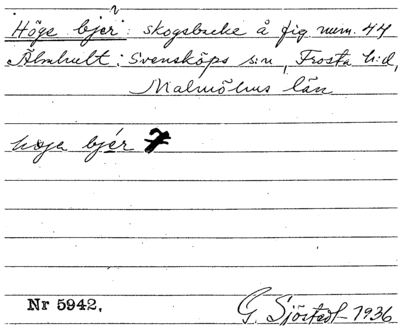 Höge bjer: skogsbacke å fig num. 44
Älmhult: Svensköps s:n, Frosta h:d,
Malmöhus län
høja bjér
Nr 5942,
G. Sjöstedt 1936